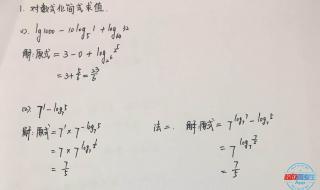 1. 对数式化简求值.
(1). lg1000 - 10log₅1 + log₆₄32
解:原式 = 3 - 0 + log_{2⁶}2⁵
= 3 + 5/6 = 23/6
(2). 7^{1-log₇5}
解:原式 = 7¹ × 7^{-log₇5}
= 7 × 7^{log₇1/5}
= 7/5
法二. 解:原式 = 7^{log₇7 - log₇5}
= 7^{log₇7/5}
= 7/5
App